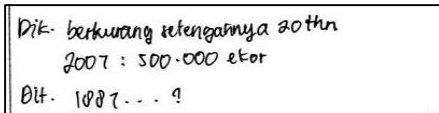 Dik. berkurang setengahnya 20 thn
2007 : 500.000 ekor
Dit. 1887 . . . ?